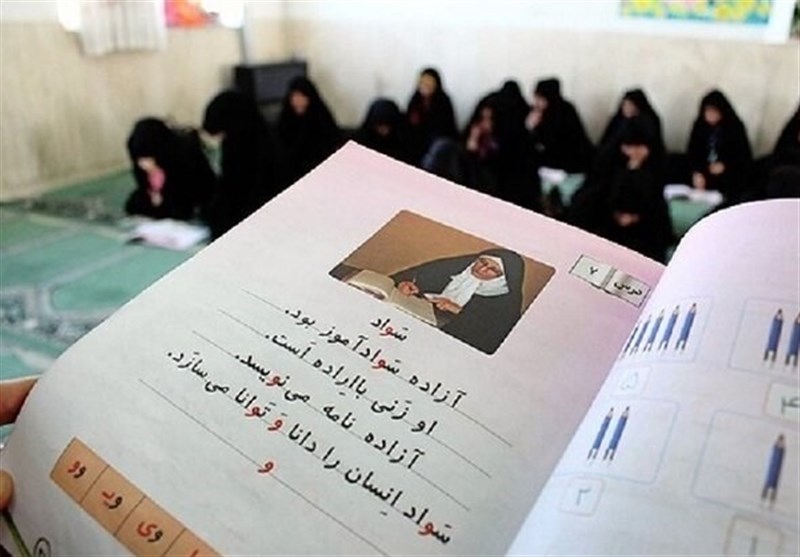 درس ۷
سَواد
آزاده سَوادآموز بود.
او زَنی بااِراده اَست.
آزاده نامه می‌نویسد.
سَواد اِنسان را دانا وَ تَوانا می‌سازَد.
و
وو ویـ وی
۵ ۴
۲